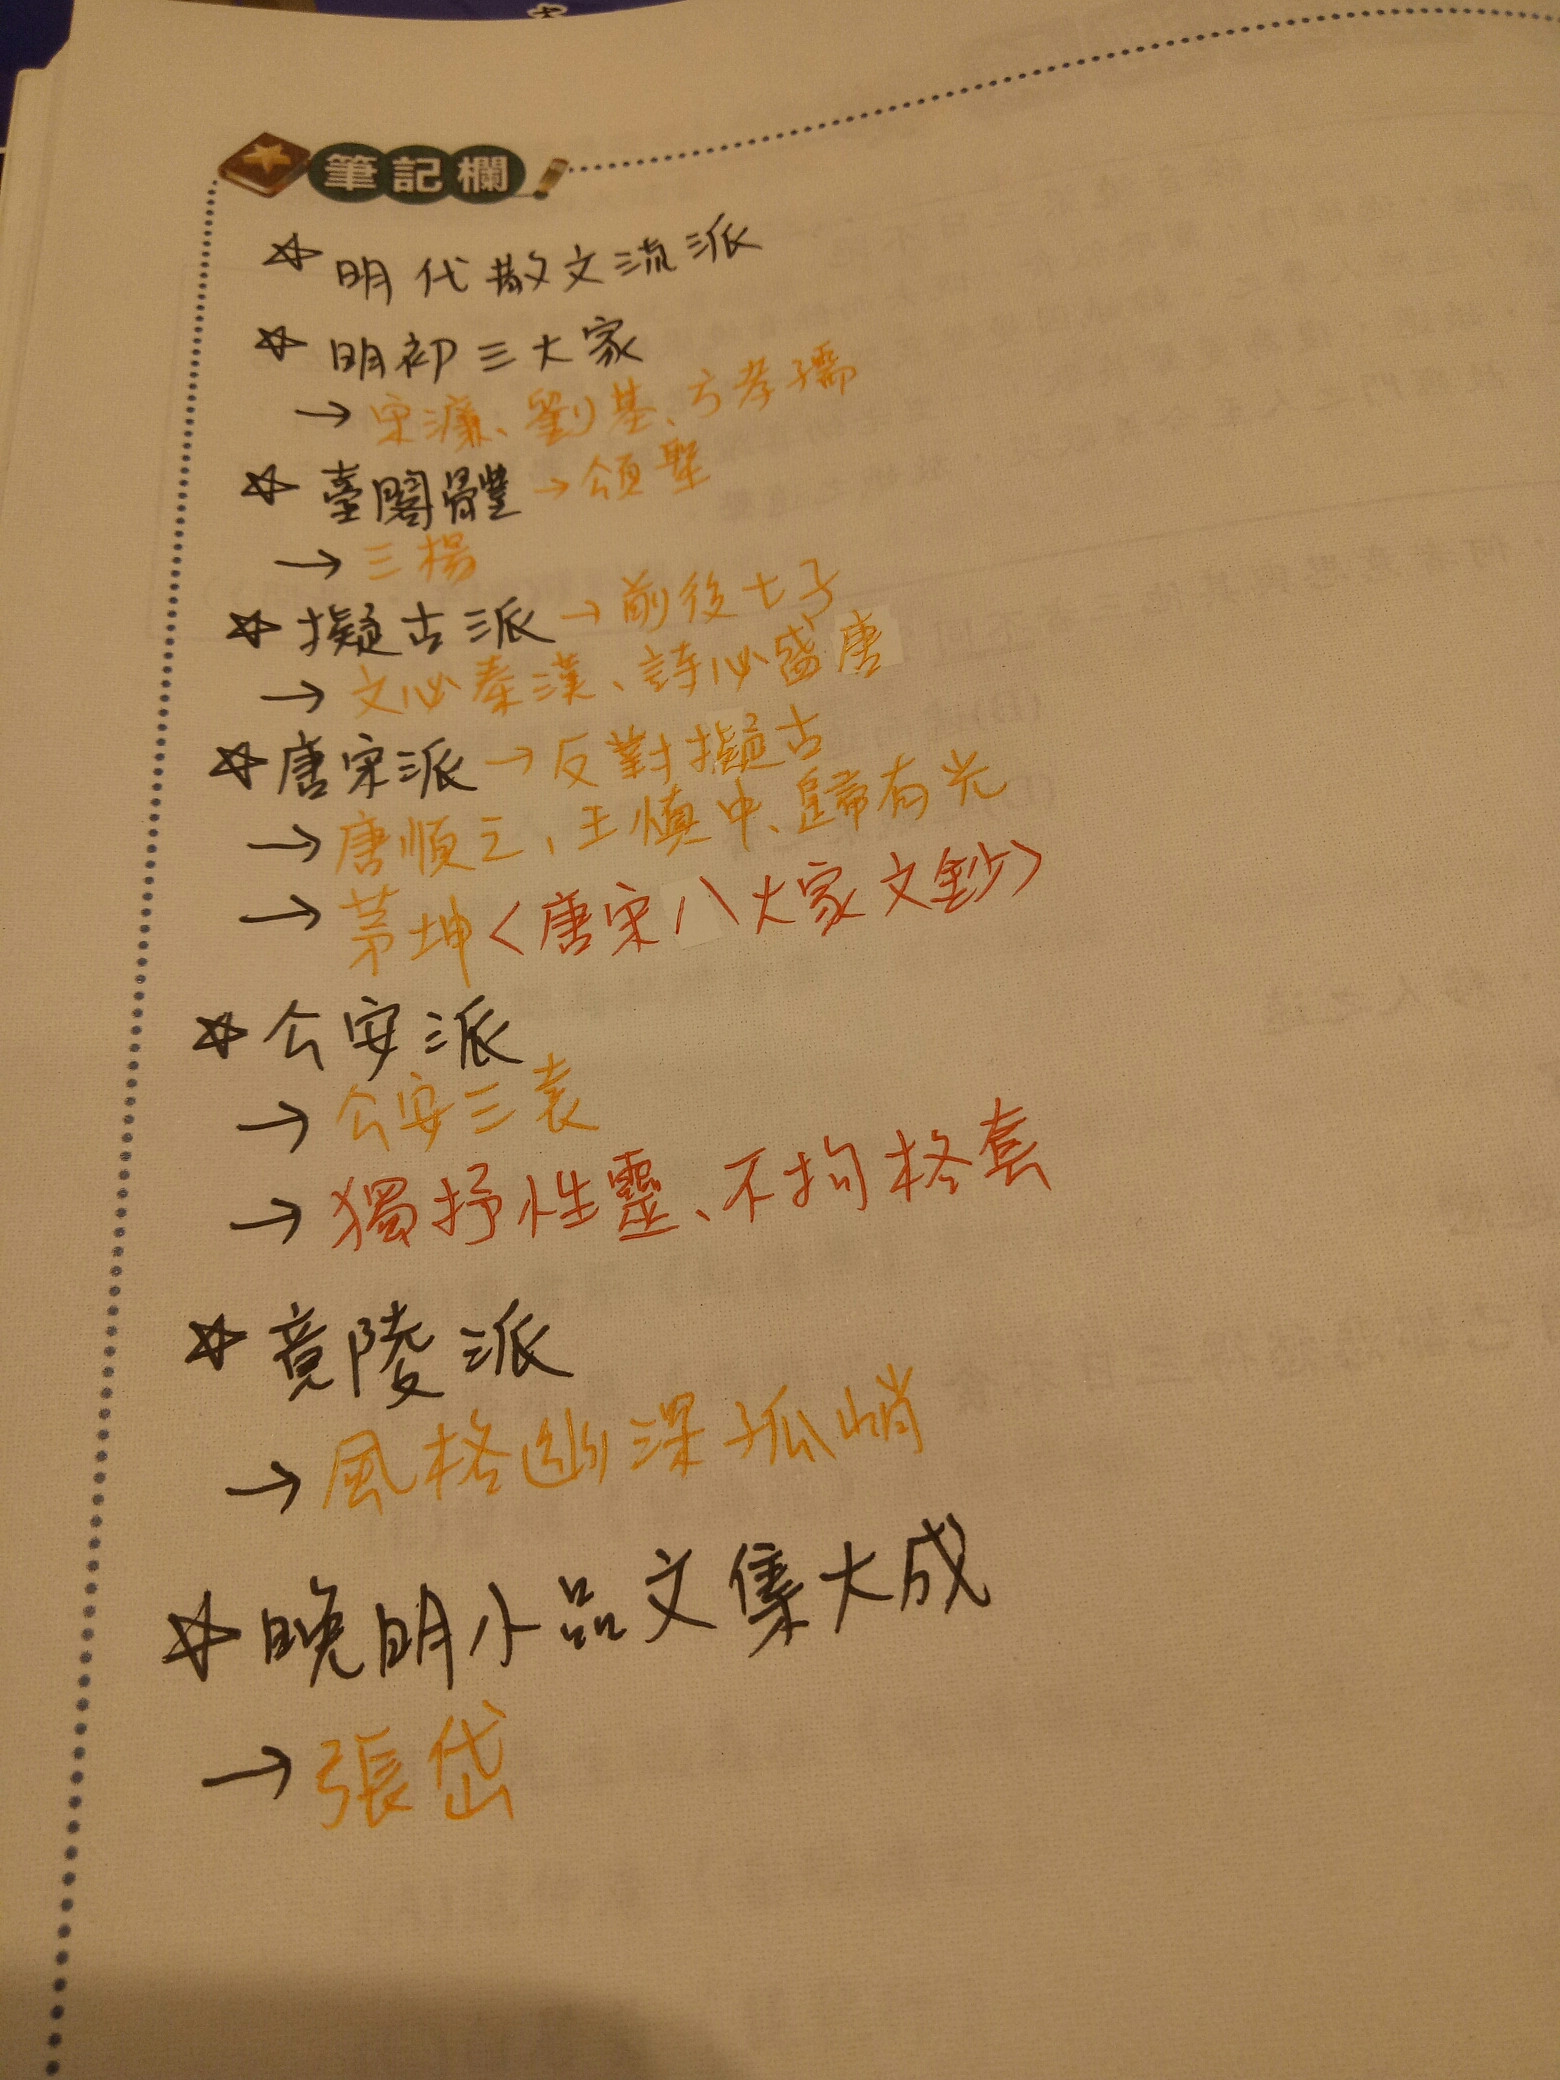 筆記欄
☆ 明代散文流派
☆ 明初三大家
→ 宋濂、劉基、方孝孺
☆ 臺閣體 → 頌聖
→ 三楊
☆ 擬古派 → 前後七子
→ 文必秦漢、詩必盛唐
☆ 唐宋派 → 反對擬古
→ 唐順之、王慎中、歸有光
→ 茅坤〈唐宋八大家文鈔〉
☆ 公安派
→ 公安三袁
→ 獨抒性靈、不拘格套
☆ 竟陵派
→ 風格幽深孤峭
☆ 晚明小品文集大成
→ 張岱